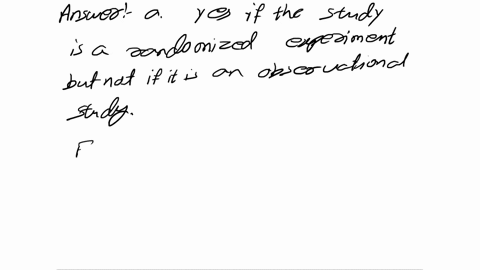 Answer:- a. yes if the study
is a randomized experiment
but not if it is an observational
study.
F